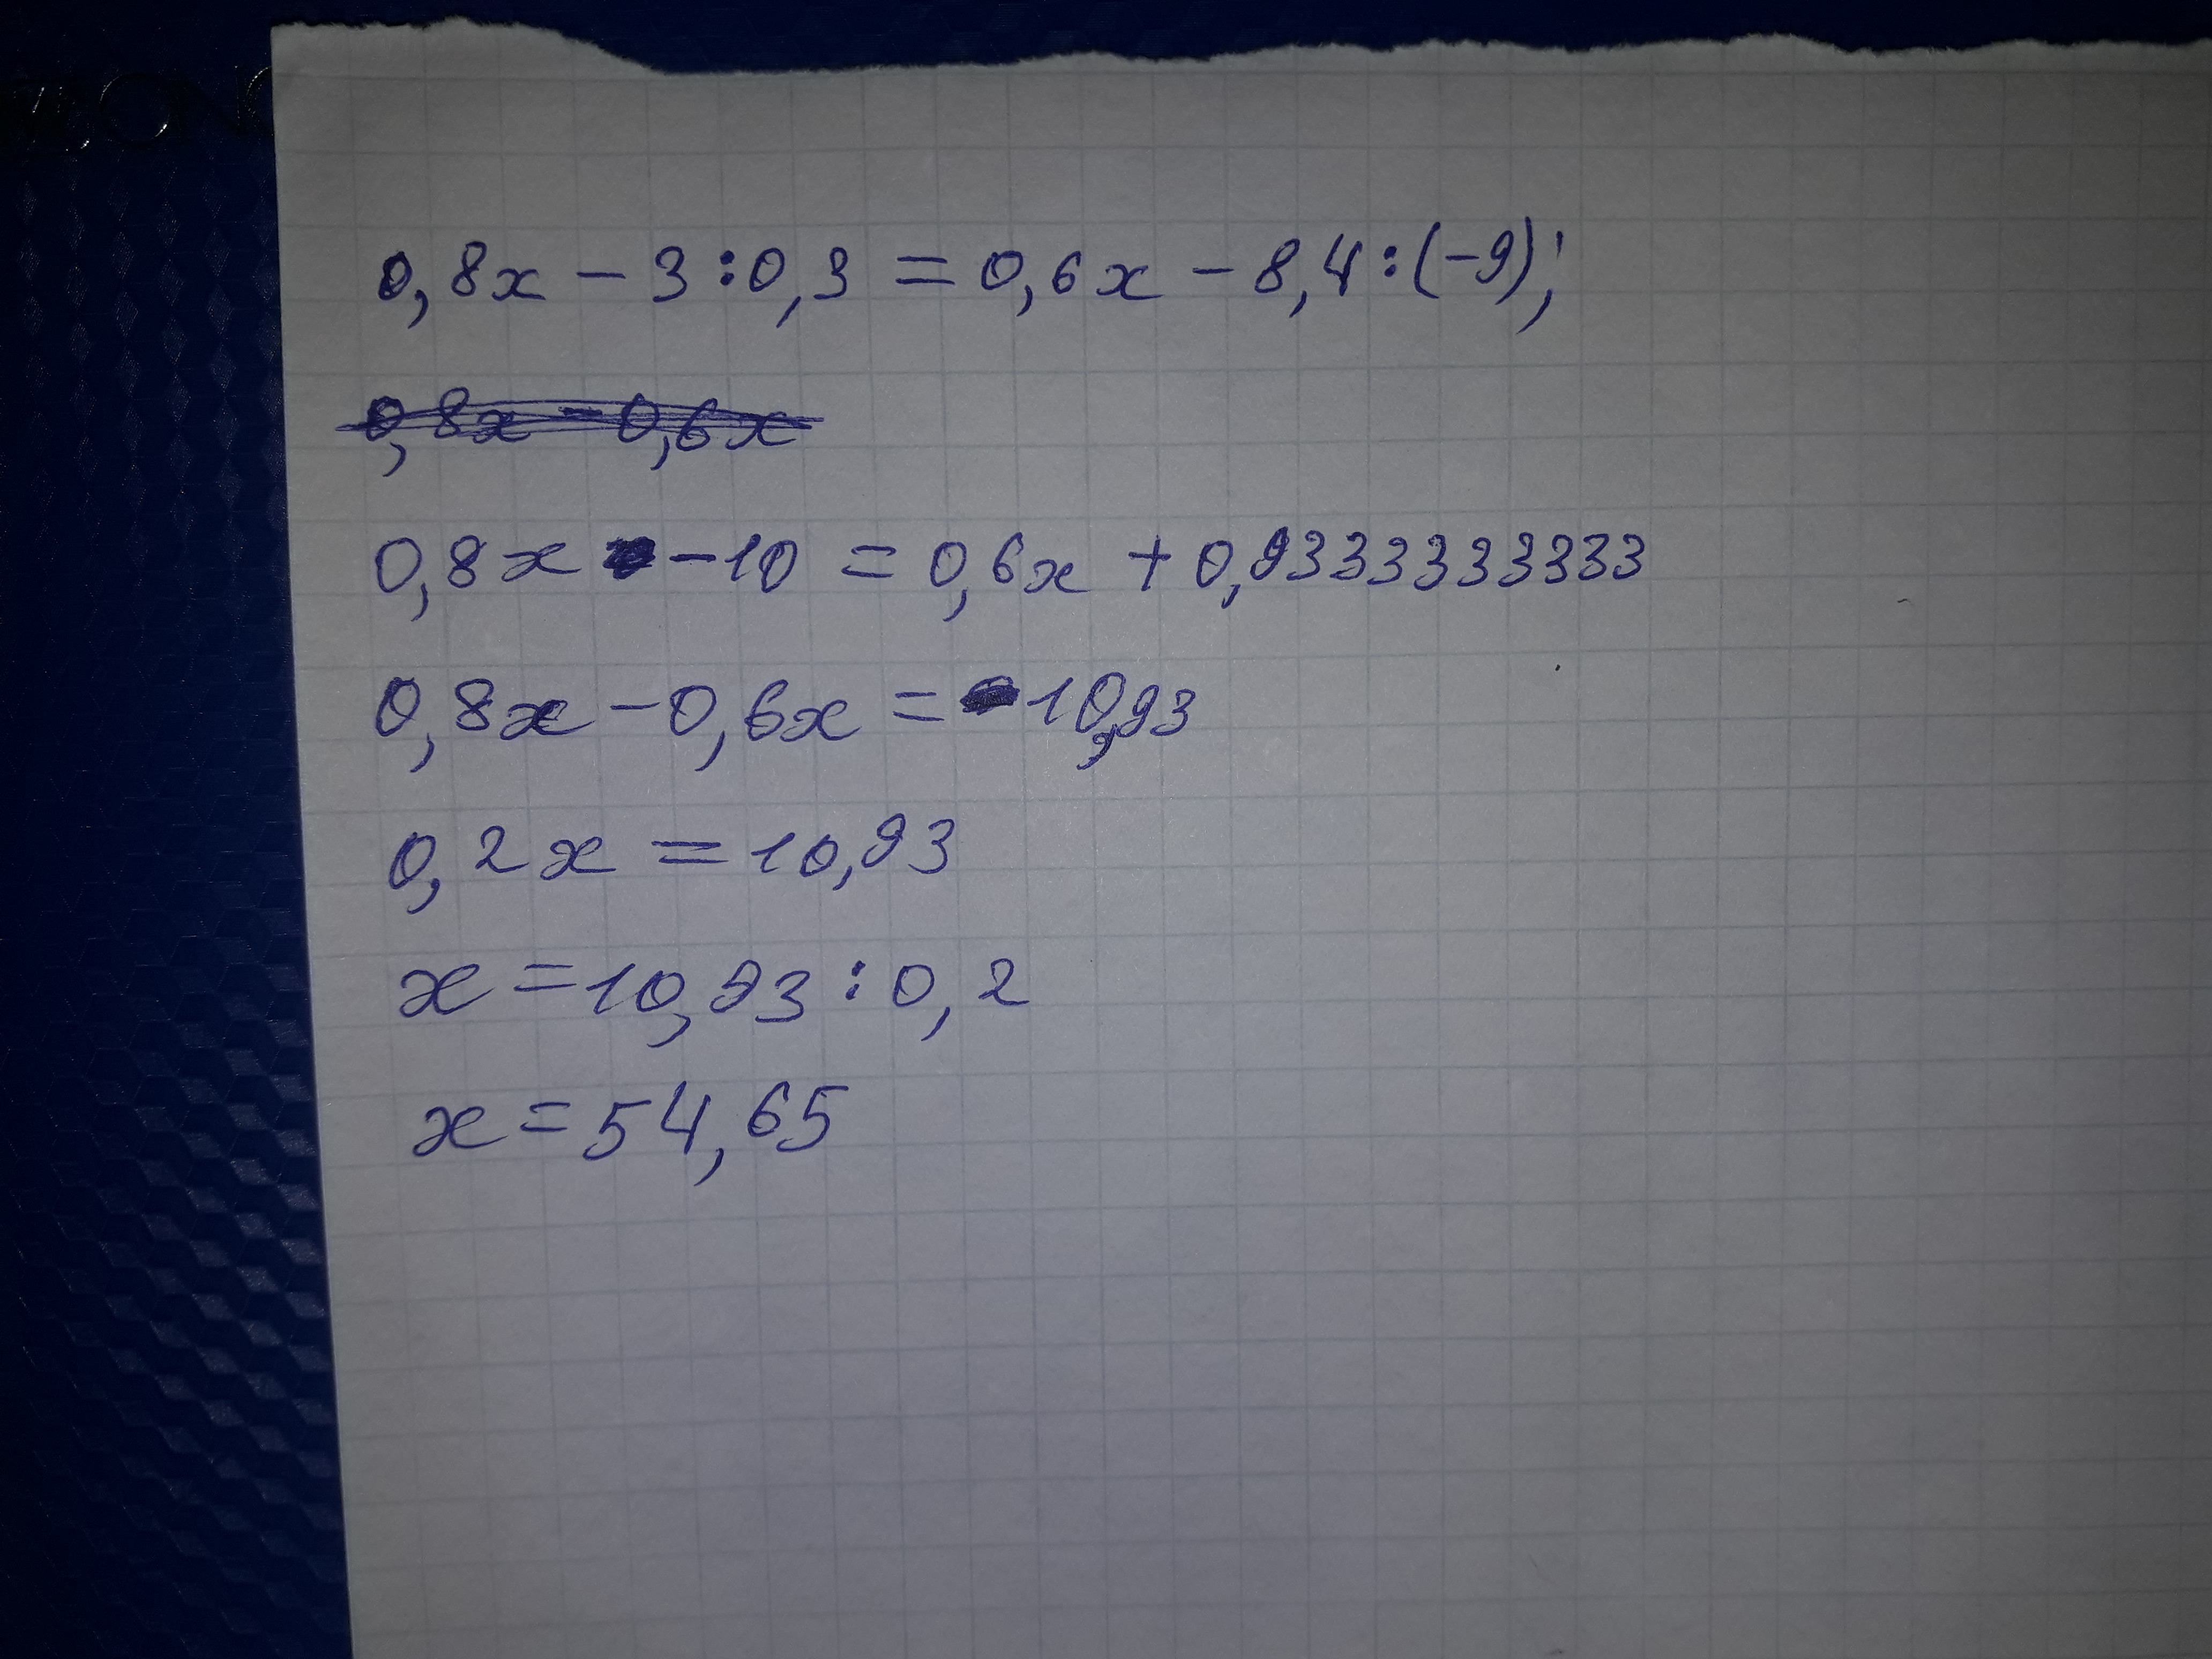 0,8x - 3 : 0,3 = 0,6x - 8,4 : (-9);
0,8x - 0,6x
0,8x - 10 = 0,6x + 0,9333333333
0,8x - 0,6x = 10,93
0,2x = 10,93
x = 10,93 : 0,2
x = 54,65